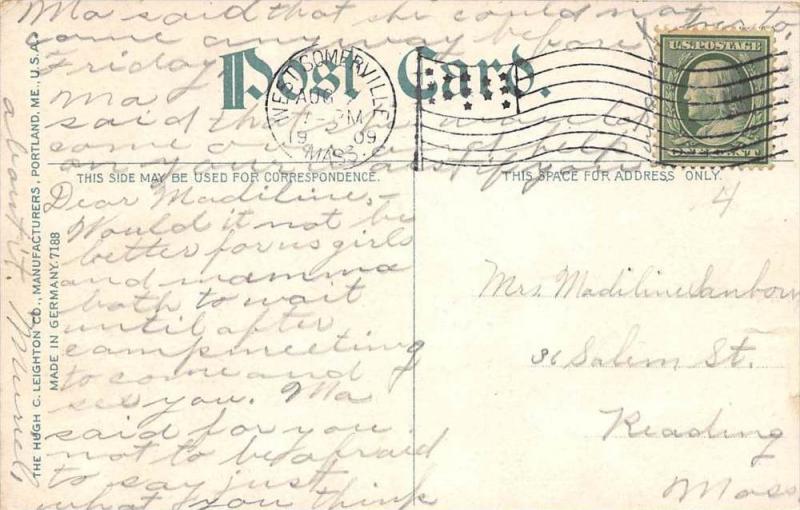 Ma said that she could not
come any way before
Friday
Ma
said that
come
on your
Post Card.
U.S. POSTAGE
WEST SOMERVILLE
AUG 7
PM
19 09
MASS.
THIS SIDE MAY BE USED FOR CORRESPONDENCE.
THIS SPACE FOR ADDRESS ONLY.
Dear Madiline,-
Would it not be
better for us girls
and mamma
both to wait
until after
campmeeting
to come and
see you. Ma
said for you
not to be afraid
to say just
what you think
about it. Minnie
4
Mrs. Madiline Sanborn
36 Salem St.
Reading
Mass
THE HUGH C. LEIGHTON CO., MANUFACTURERS, PORTLAND, ME., U.S.A.
MADE IN GERMANY. 7188